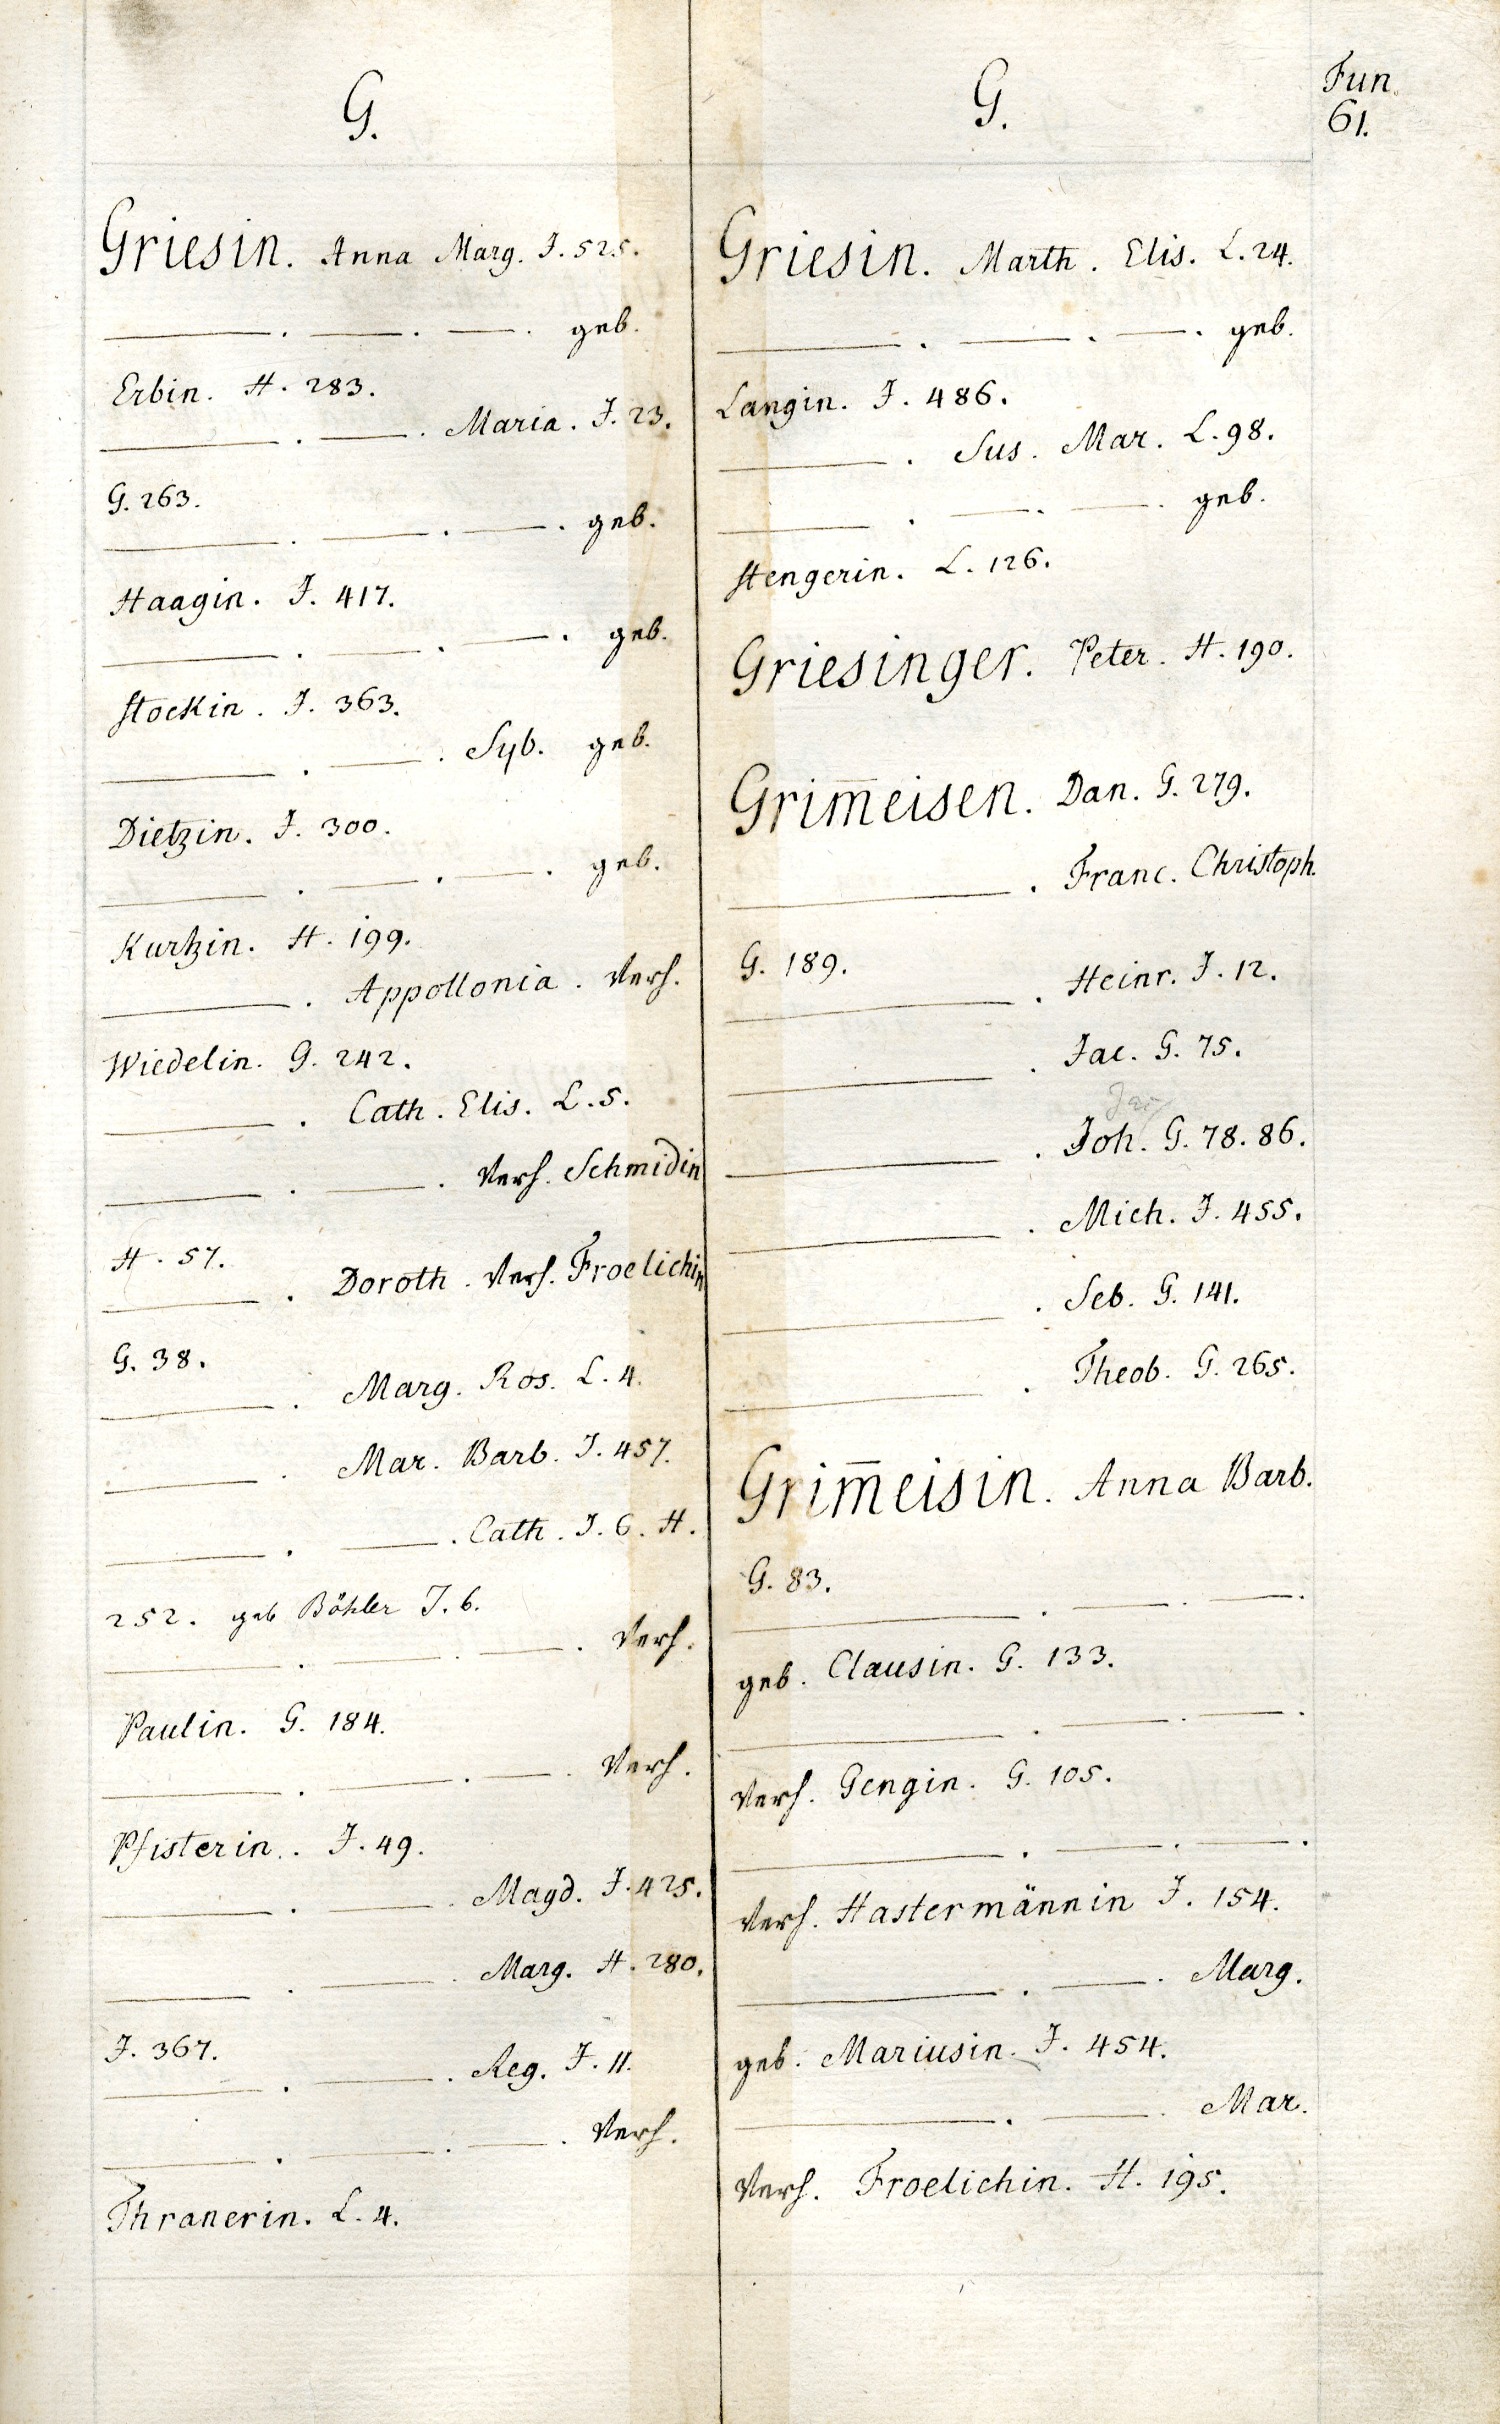 G.
Griesin. Anna Marg. J. 525.
———. ———. ——. geb.
Erbin. H. 283.
———. ———. Maria. J. 23.
G. 263.
———. ———. ——. geb.
Haagin. J. 417.
———. ———. ——. geb.
Stockin. J. 363.
———. ———. Syb. geb.
Dietzin. J. 300.
———. ———. ——. geb.
Kurtzin. H. 199.
———. Appollonia. Verh.
Wiedelin. G. 242.
———. Cath. Elis. L. 5.
———. ———. Verh. Schmidin
H. 57.
———. Doroth. Verh. Froelichin
G. 38.
———. Marg. Ros. L. 4.
———. Mar. Barb. J. 457.
———. ———. Cath. J. 6. H.
252. geb Böhler J. 6.
———. ———. ——. Verh.
Paulin. G. 184.
———. ———. ——. Verh.
Pfisterin. J. 49.
———. ———. Magd. J. 425.
———. ———. Marg. H. 280.
J. 367.
———. ———. Reg. J. 11.
———. ———. ——. Verh.
Thranerin. L. 4.
G.
Griesin. Marth. Elis. L. 24.
———. ———. ——. geb.
Langin. J. 486.
———. Sus. Mar. L. 98.
———. ———. ——. geb.
Stengerin. L. 126.
Griesinger. Peter. H. 190.
Grim̅eisen. Dan. G. 279.
———. Franc. Christoph.
G. 189.
———. Heinr. J. 12.
———. Jac. G. 75.
———. Joh. G. 78. 86.
———. Mich. J. 455.
———. Seb. G. 141.
———. Theob. G. 265.
Grim̅eisin. Anna Barb.
G. 83.
———. ———. ——.
geb. Clausin. G. 133.
———. ———. ——.
Verh. Gengin. G. 105.
———. ———. ——.
Verh. Hastermännin J. 154.
———. ———. Marg.
geb. Mariusin. J. 454.
———. ———. Mar.
Verh. Froelichin. H. 195.
Fun.
61.